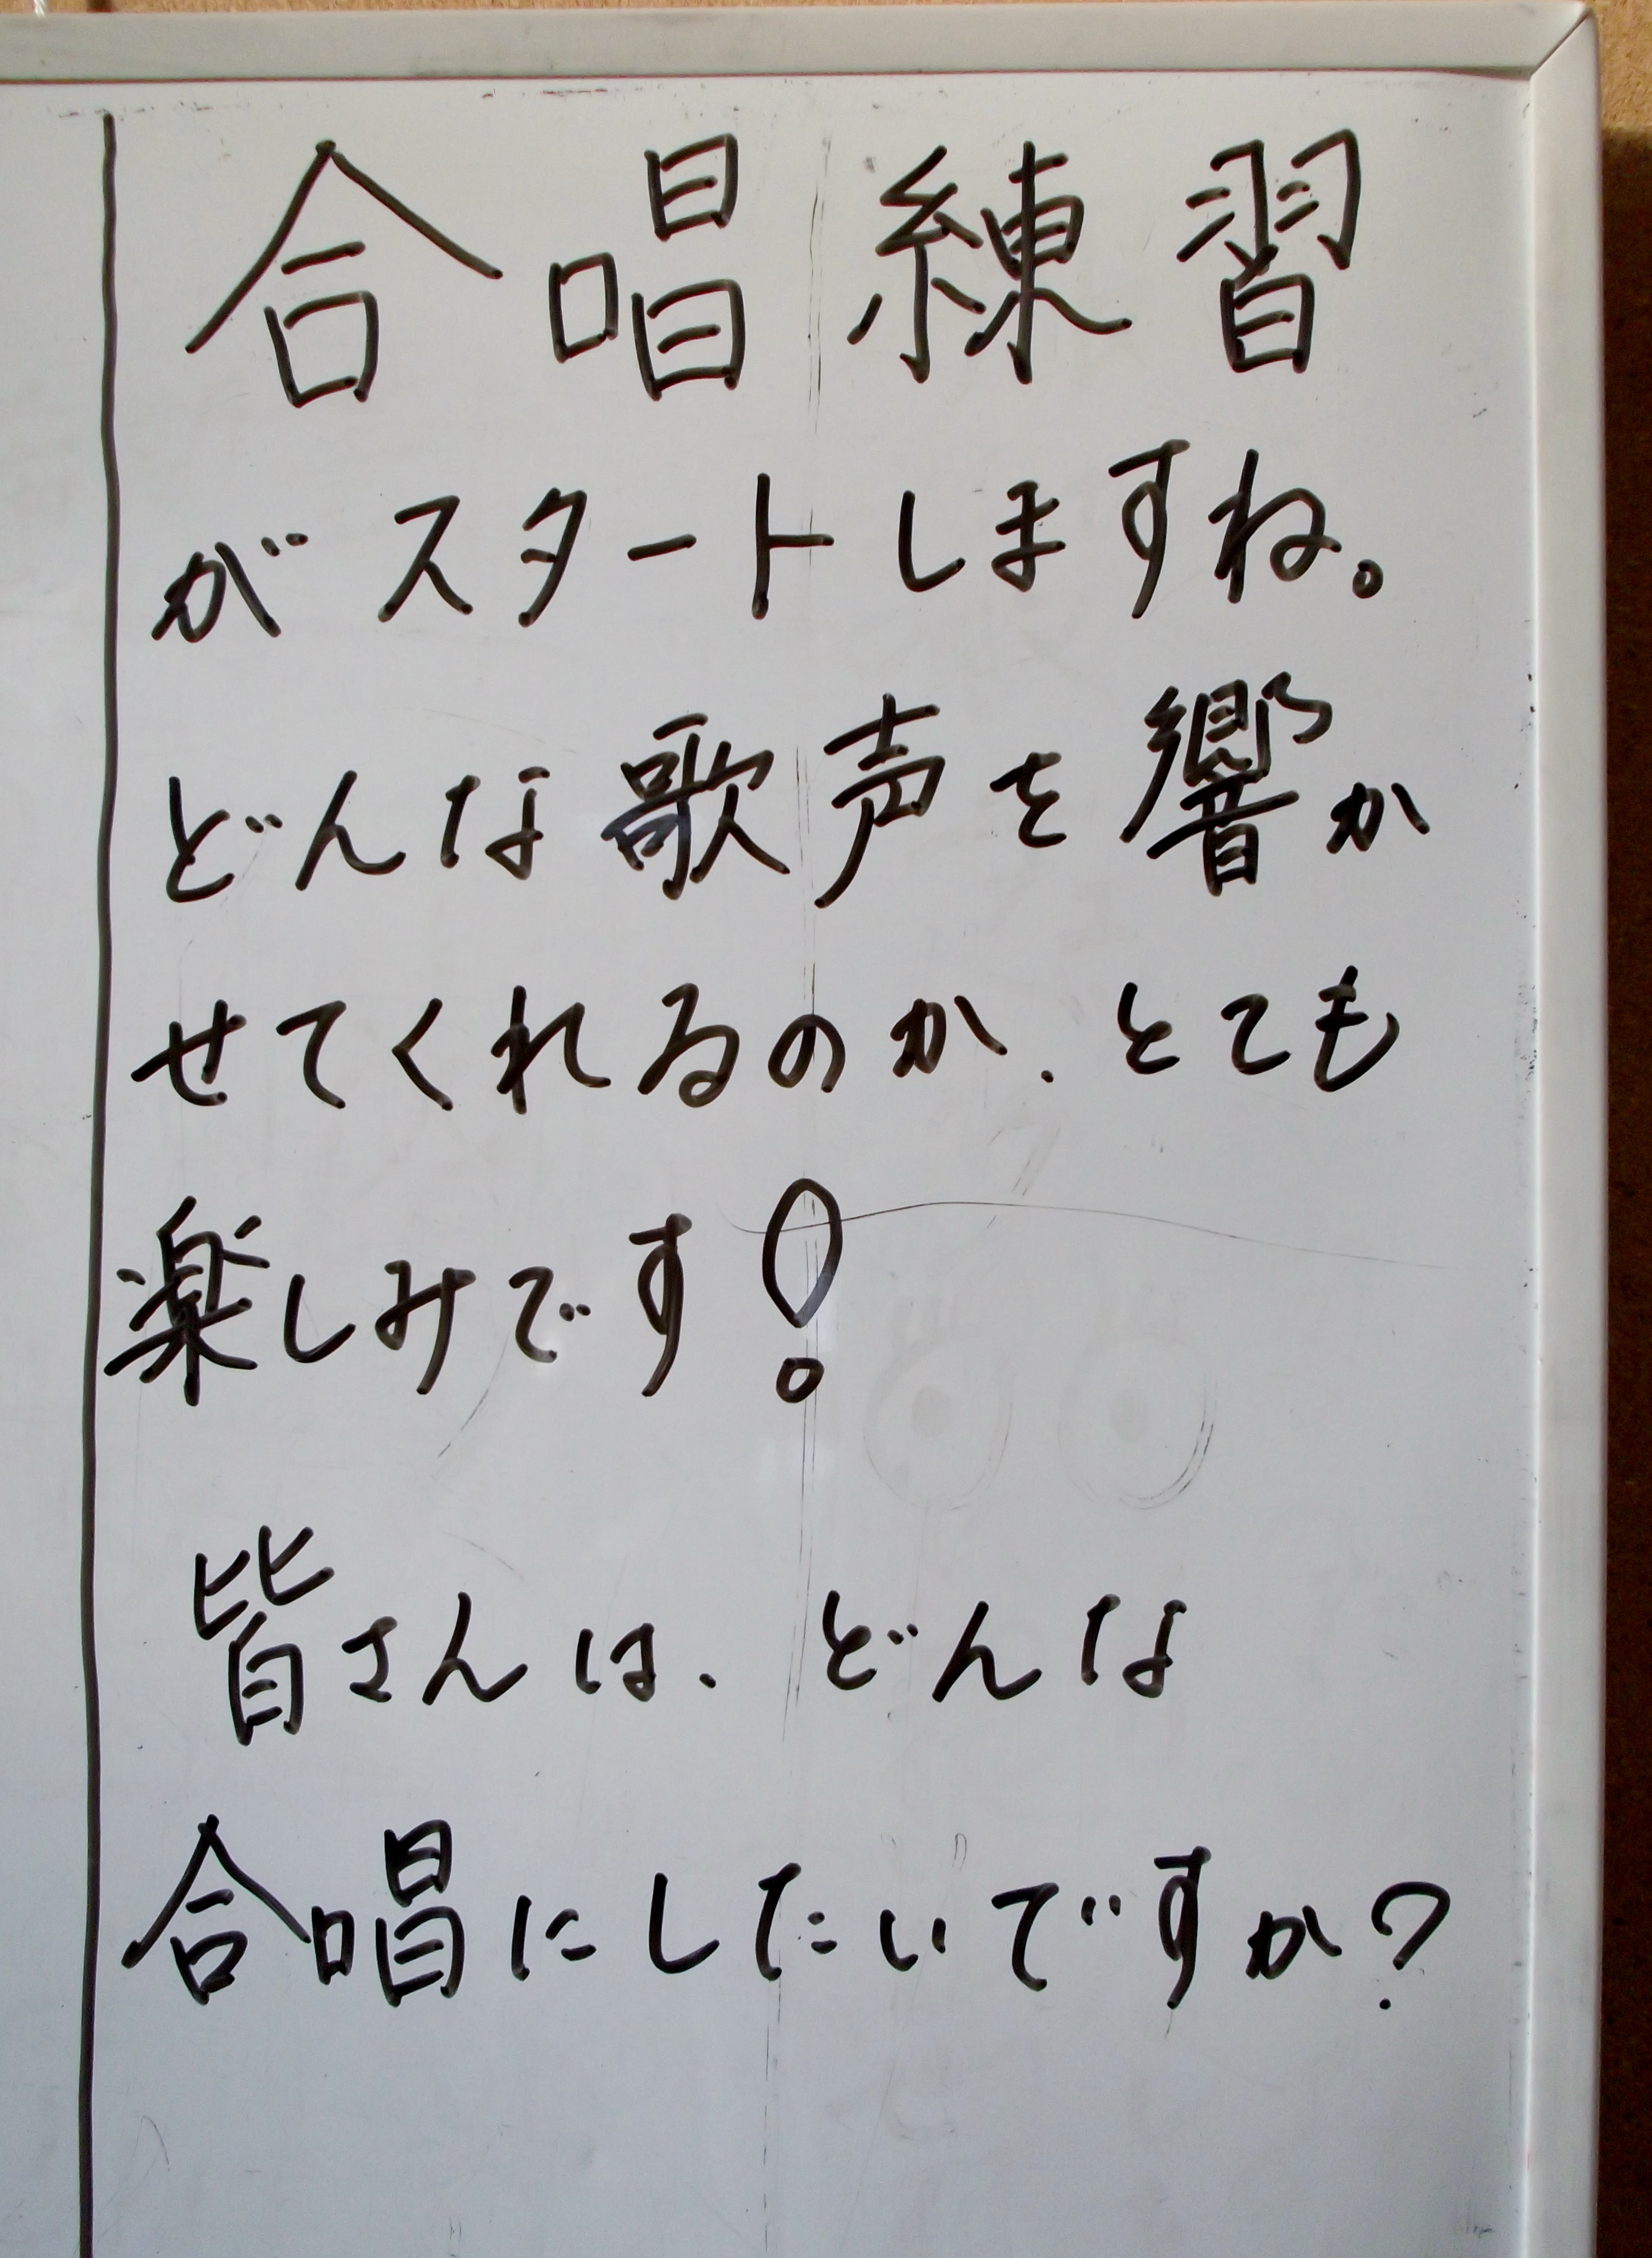 合唱練習
がスタートしますね。
どんな歌声を響か
せてくれるのか、とても
楽しみです!
皆さんは、どんな
合唱にしたいですか?